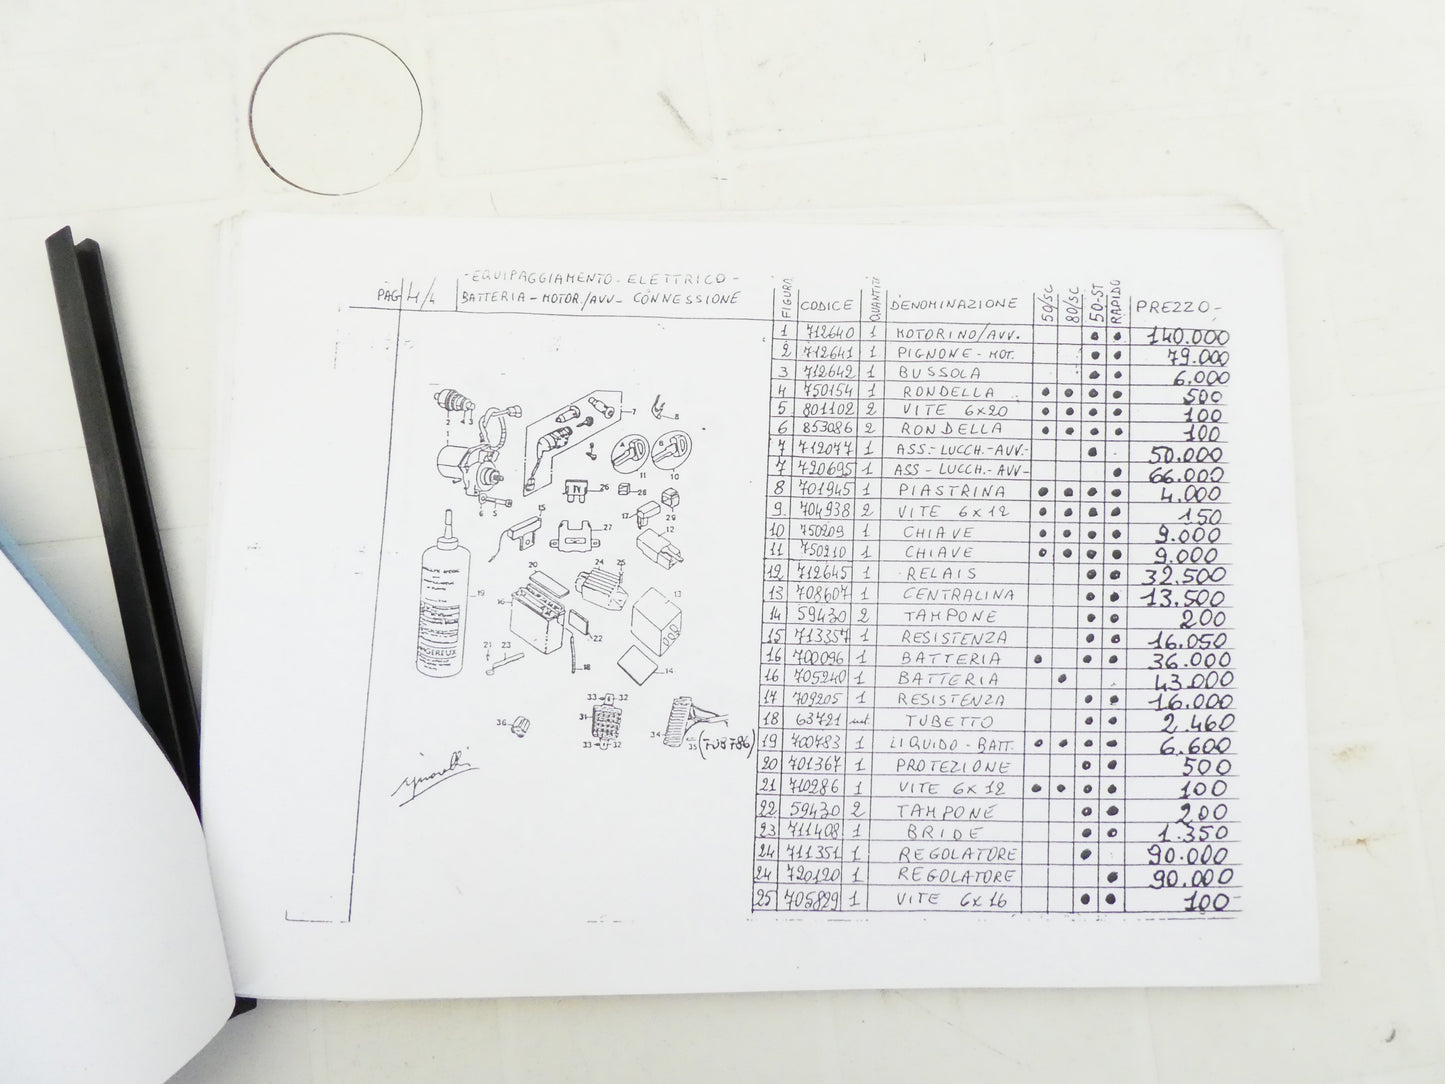 PAG 4/4
-EQUIPAGGIAMENTO-ELETTRICO-
BATTERIA-MOTOR./AVV- CONNESSIONE
FIGURA CODICE QUANTITÀ DENOMINAZIONE 50/SC 80/SC 50-ST RAPIDO PREZZO-
1 712640 1 MOTORINO/AVV. • • 140.000
2 712641 1 PIGNONE-MOT. • • 79.000
3 712642 1 BUSSOLA • • 6.000
4 750154 1 RONDELLA • • • • 500
5 801102 2 VITE 6x20 • • • • 100
6 853086 2 RONDELLA • • • • 100
7 712077 1 ASS-LUCCH.-AVV- • 50.000
7 720695 1 ASS-LUCCH.-AVV- • 66.000
8 701945 1 PIASTRINA • • • • 4.000
9 704938 2 VITE 6x12 • • • • 150
10 750209 1 CHIAVE • • • • 9.000
11 750210 1 CHIAVE • • • • 9.000
12 712645 1 RELAIS • • 32.500
13 708607 1 CENTRALINA • • 13.500
14 59430 2 TAMPONE • • 200
15 713357 1 RESISTENZA • • 16.050
16 700096 1 BATTERIA • • • 36.000
16 705240 1 BATTERIA • 43.000
17 709205 1 RESISTENZA • • 16.000
18 63721 TUBETTO • • 2.460
19 700783 1 LIQUIDO-BATT. • • • • 6.600
20 701367 1 PROTEZIONE • • 500
21 710286 1 VITE 6x12 • • • • 100
22 59430 2 TAMPONE • • 200
23 711408 1 BRIDE • • 1.350
24 711351 1 REGOLATORE • 90.000
24 720120 1 REGOLATORE • 90.000
25 705829 1 VITE 6x16 • • 100-
2 4 3
1
7
8
9
A B
11 10
6 5
26 28
29
15
27
17
12
20 24 25
19
16
13
22
21 23
18
14
33 32
31
33 32
36
34
35 (708786)
DANGEREUX